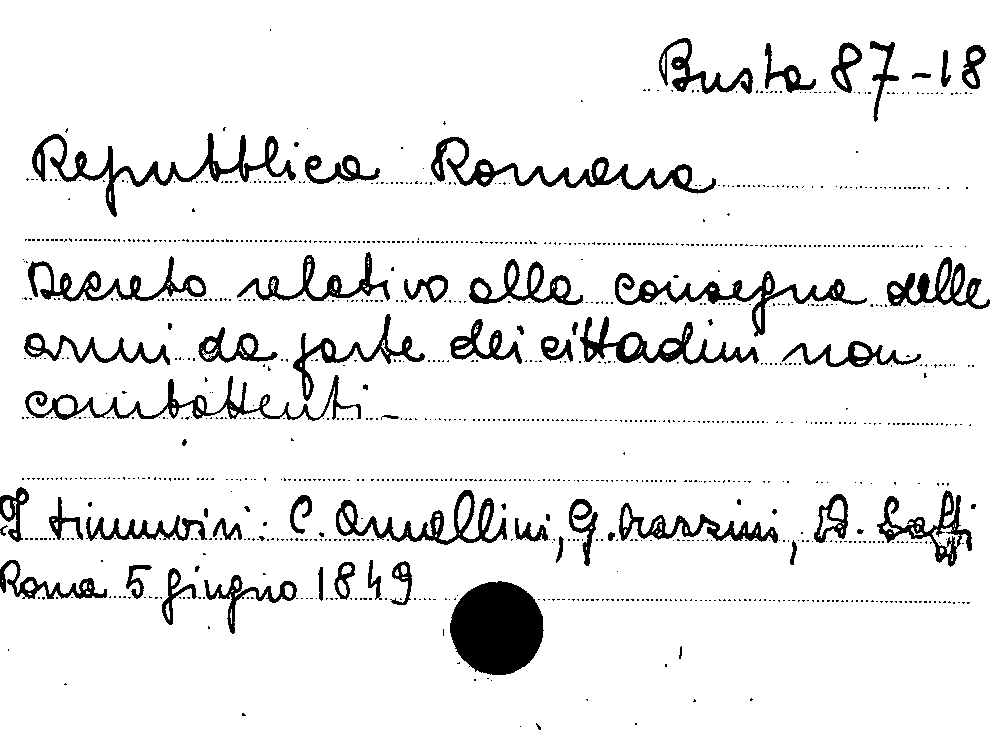 Busta 87-18
Repubblica Romana
Decreto relativo alla consegna delle
armi da parte dei cittadini non
combattenti -
I triumviri: C. Armellini, G. Mazzini, A. Saffi
Roma 5 giugno 1849